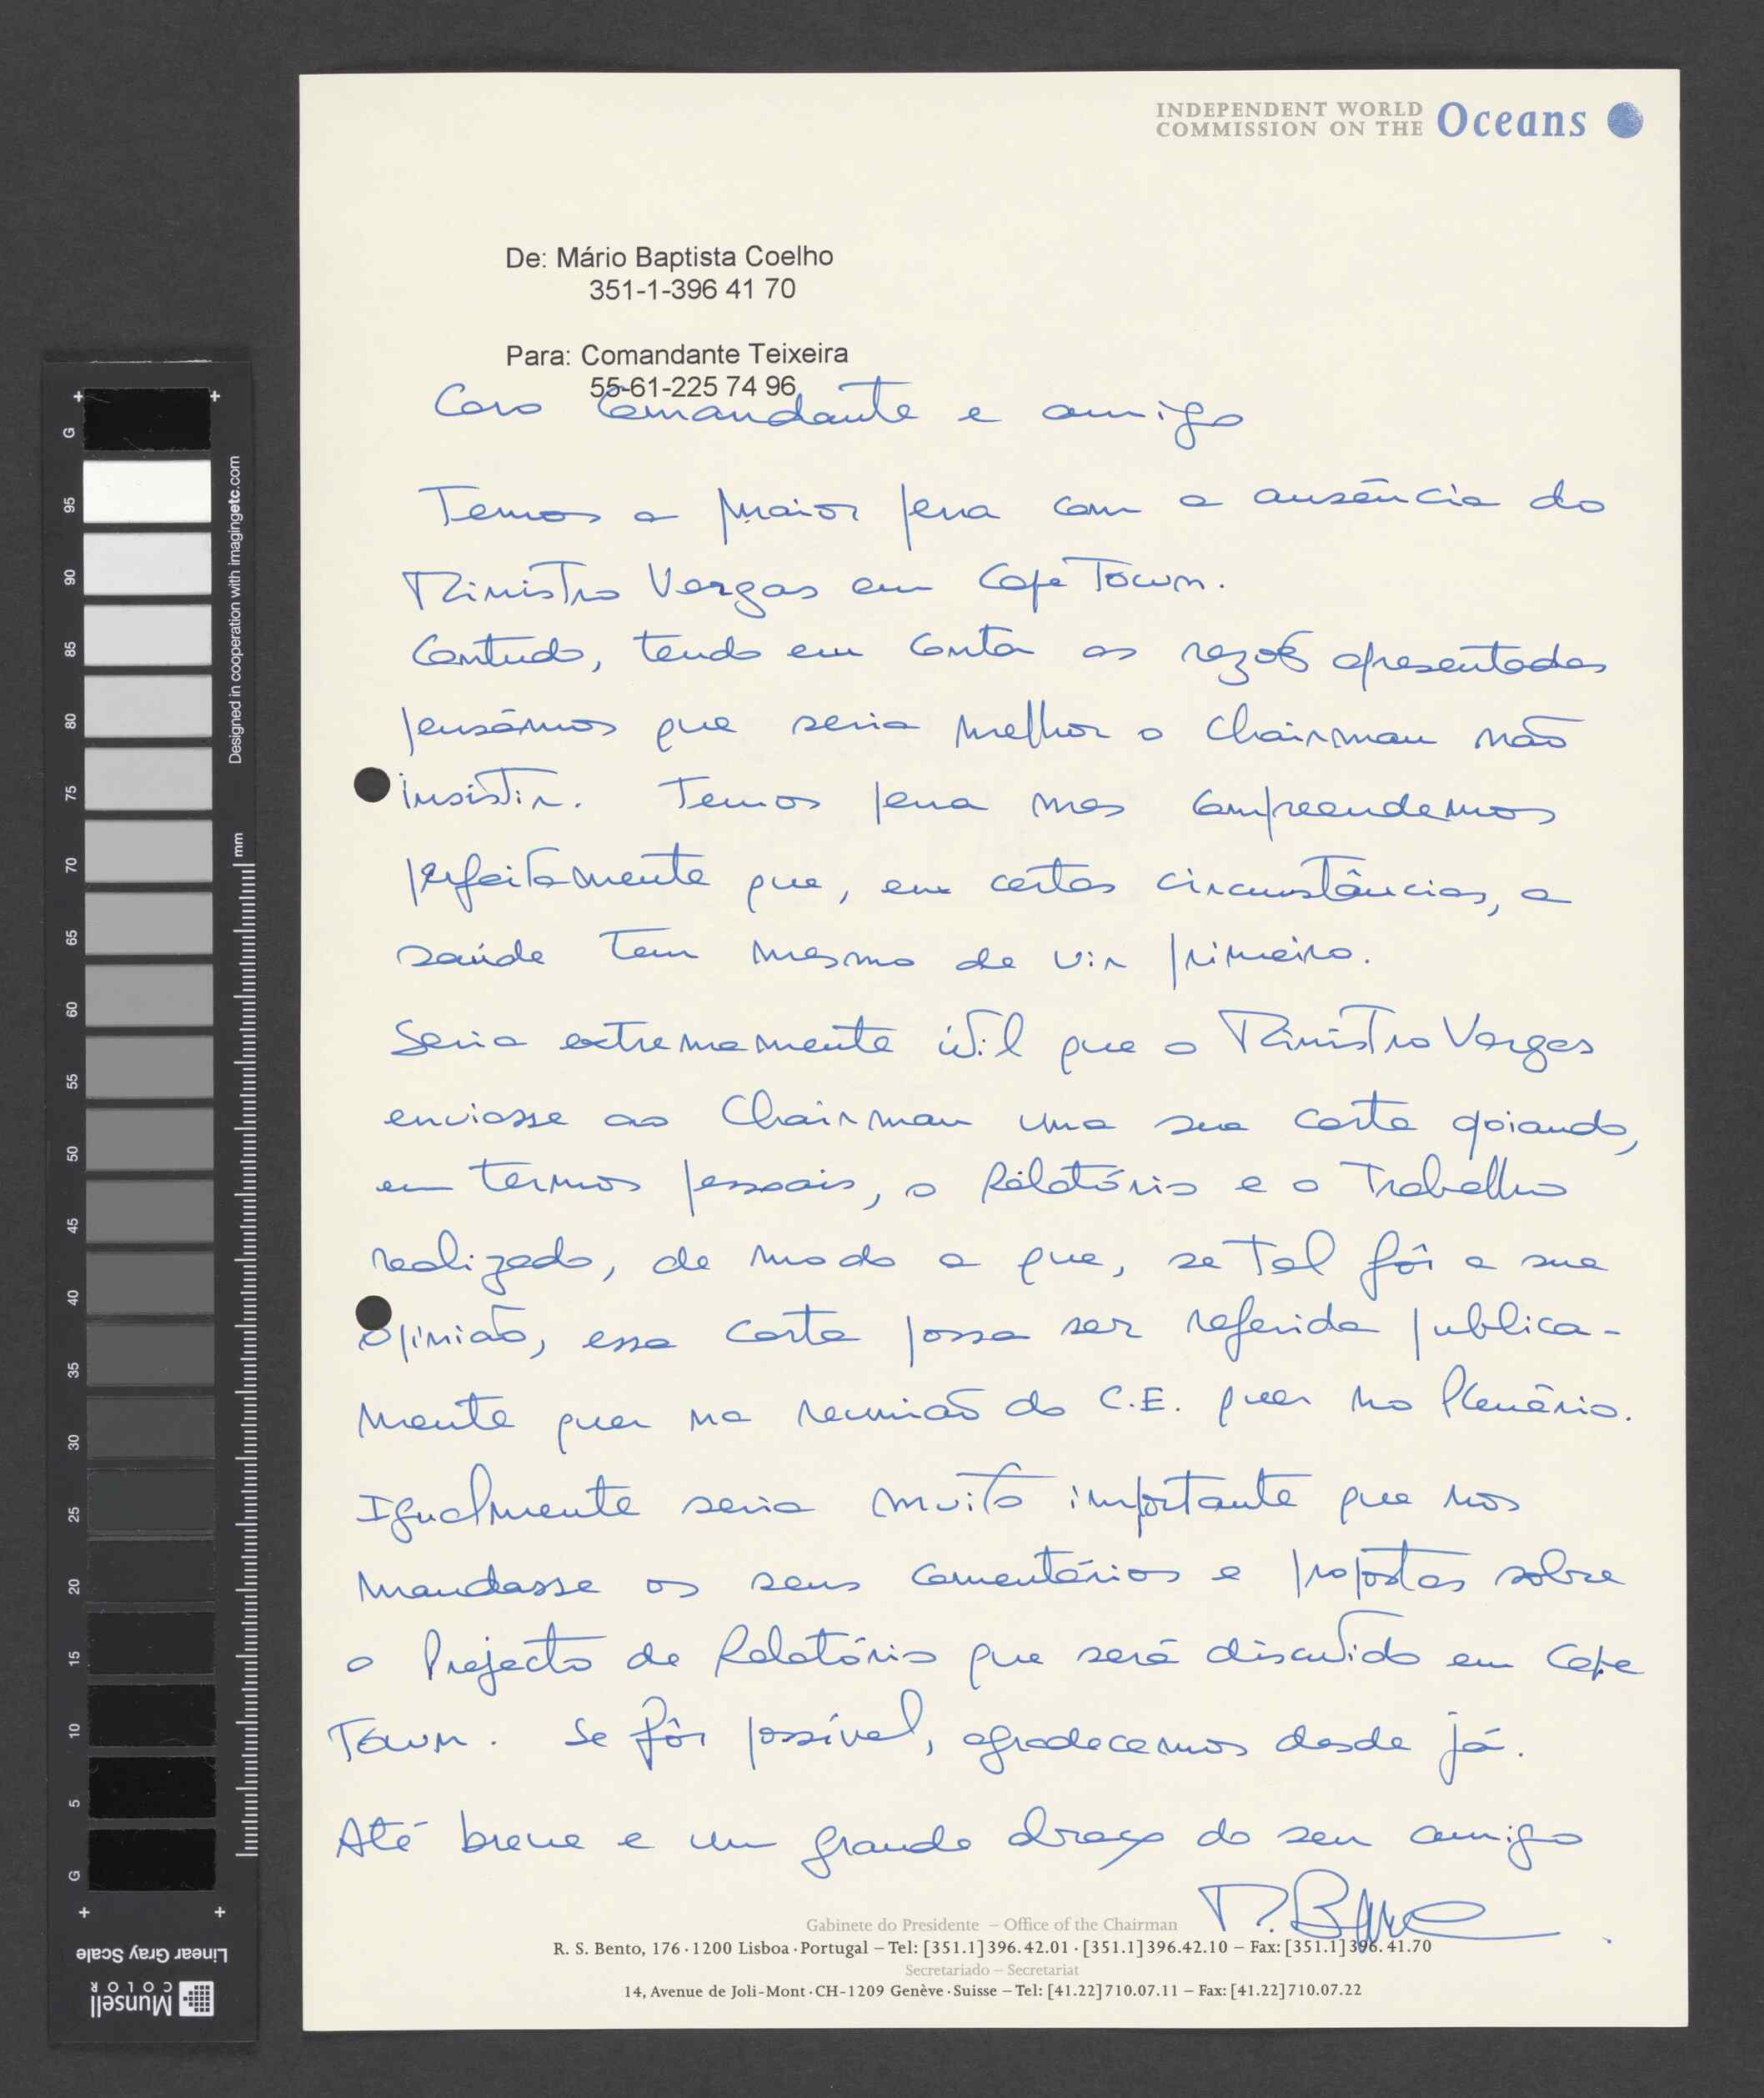 INDEPENDENT WORLD
COMMISSION ON THE Oceans
De: Mário Baptista Coelho
351-1-396 41 70
Para: Comandante Teixeira
55-61-225 74 96
Caro Comandante e amigo
Temos a maior pena com a ausência do
Ministro Vargas em Cape Town.
Contudo, tendo em conta as razões apresentadas
pensámos que seria melhor o Chairman não
insistir. Temos pena mas compreendemos
perfeitamente que, em certas circunstâncias, a
saúde tem mesmo de vir primeiro.
Seria extremamente útil que o Ministro Vargas
enviasse ao Chairman uma sua carta apoiando,
em termos pessoais, o Relatório e o Trabalho
realizado, de modo a que, se tal fôr a sua
opinião, essa carta possa ser referida publica-
mente quer na reunião do C.E. quer no Plenário.
Igualmente seria muito importante que nos
mandasse os seus comentários e propostas sobre
o Projecto de Relatório que será discutido em Cape
Town. Se fôr possível, agradecemos desde já.
Até breve e um grande abraço do seu amigo
Gabinete do Presidente – Office of the Chairman
R. S. Bento, 176 · 1200 Lisboa · Portugal – Tel: [351.1] 396.42.01 · [351.1] 396.42.10 – Fax: [351.1] 396.41.70
Secretariado – Secretariat
14, Avenue de Joli-Mont · CH-1209 Genève · Suisse – Tel: [41.22] 710.07.11 – Fax: [41.22] 710.07.22
Designed in cooperation with imagingetc.com
mm
G
95
90
85
80
75
70
65
60
55
50
45
40
35
30
25
20
15
10
5
G
Linear Gray Scale
Munsell
COLOR